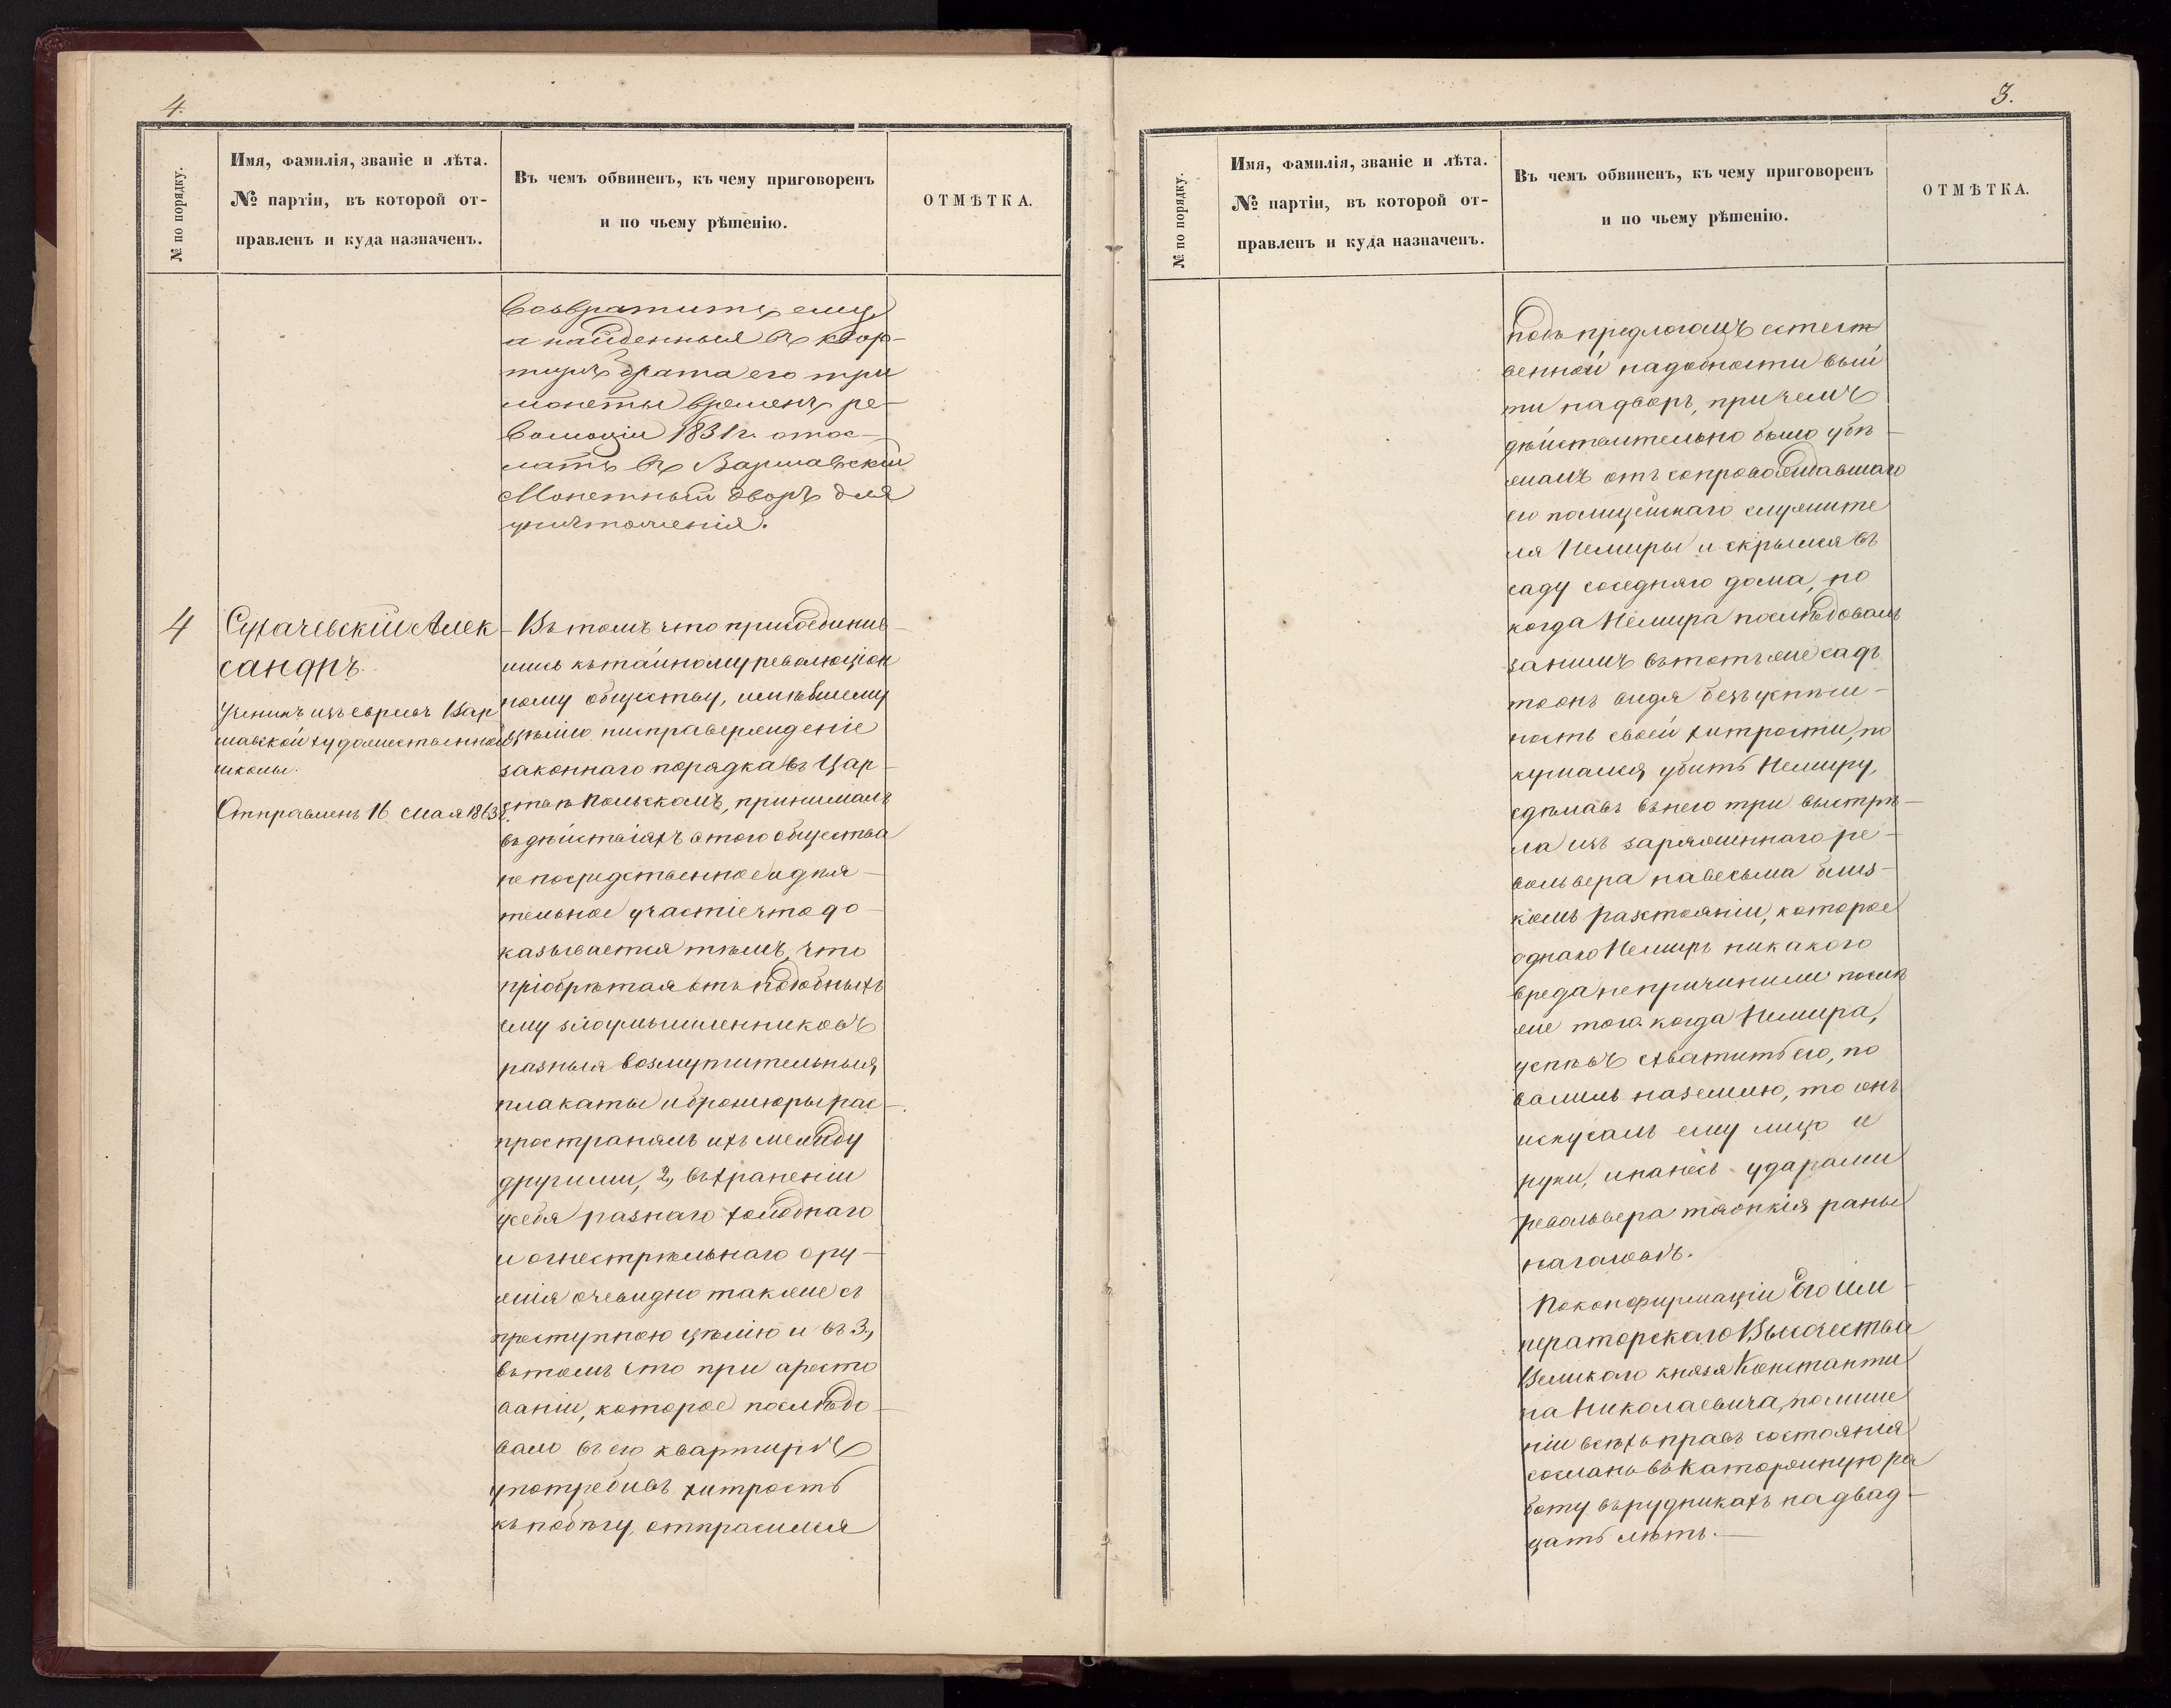 4.
№ по порядку.
Имя, фамилія, званіе и лѣта.
№ партіи, въ которой от-
правленъ и куда назначенъ.
Въ чемъ обвиненъ, къ чему приговоренъ
и по чьему рѣшенію.
ОТМѢТКА.
возвратить ему,
а найденныя въ квар-
тирѣ брата его три
монеты временъ ре-
волюціи 1831 г. отос-
лать въ Варшавскій
Монетный дворъ для
уничтоженія.
4
Сухачевскій Алек-
сандръ.
Ученикъ изъ евреевъ Вар
шавской художественной
школы.
Отправленъ 16 мая 1863 г.
Въ томъ что присоединив-
шись къ тайному революціон
ному обществу, имѣвшему
цѣлію ниспроверженіе
законнаго порядка въ Цар-
ствѣ Польскомъ, принималъ
въ дѣйствіяхъ этого общества
непосредственное и дѣя-
тельное участіе что до-
казывается тѣмъ, что
пріобрѣтая отъ подобныхъ
ему злоумышленниковъ
разныя возмутительныя
плакаты и брошюры рас-
пространялъ ихъ между
другими, 2, въ храненіи
у себя разнаго холоднаго
и огнестрѣльнаго ору-
жія очевидно также съ
преступною цѣлію и въ 3.,
въ томъ что при аресто
ваніи, которое послѣдо-
вало въ его квартирѣ
употребивъ хитрость
къ побѣгу, отпросился
3.
№ по порядку.
Имя, фамилія, званіе и лѣта.
№ партіи, въ которой от-
правленъ и куда назначенъ.
Въ чемъ обвиненъ, къ чему приговоренъ
и по чьему рѣшенію.
ОТМѢТКА.
подъ предлогомъ естест
венной надобности вый
ти на дворъ, при чемъ
дѣйствительно было убѣ-
жалъ отъ сопровождавшаго
его полицейскаго служите
ля Немиры и скрылся въ
саду сосѣдняго дома, но
когда Немира послѣдовалъ
за нимъ въ тотъ же садъ
то онъ видя безъуспѣш-
ность своей хитрости, по
кушался убить Немиру,
сдѣлавъ въ него три выстрѣ-
ла изъ заряженнаго ре-
вольвера на весьма близ-
комъ разстояніи, которое
однако Немирѣ никакого
вреда не причинили послѣ
же того когда Немира,
успѣвъ схватить его, по
валилъ на землю, то онъ
искусалъ ему лицо и
руки, и нанесъ ударами
револьвера тяжкія раны
на головѣ.
По конфирмаціи Его Им-
ператорскаго Высочества
Великаго князя Константи
на Николаевича, по лише
ніи всѣхъ правъ состоянія
сосланъ въ каторжную ра
боту въ рудникахъ на двад-
цать лѣтъ.—